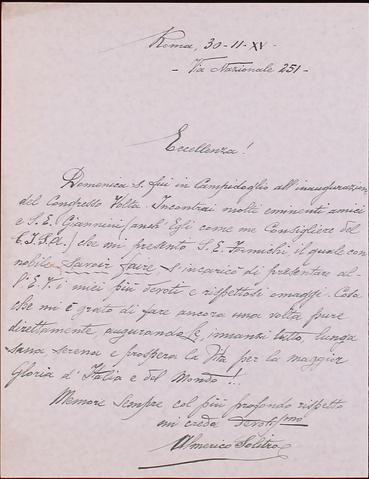 Roma, 30-11-XV-
- Via Nazionale 251-
Eccellenza!
Domenica s. fui in Campidoglio all'inaugurazione
del Congresso Volta. Incontrai molti eminenti amici
e S. E. Giannini (anch'Egli come me Consigliere del
C.I.S.A.) che mi presentò S. E. Formichi il quale con
nobile savoir faire s'incaricò di presentare al-
l'E. V. i miei più devoti e rispettosi omaggi. Cosa
che mi è grato di fare ancora una volta pure
direttamente, augurandole, innanzi tutto, lunga
sana serena e prospera la Vita per la maggior
Gloria d'Italia e del Mondo!!
Memore sempre col più profondo rispetto
mi creda devotissmo
Almerico Solitro